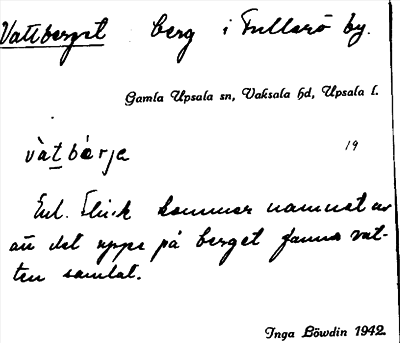 Vattberget berg i Fullerö by.
Gamla Upsala sn, Vaksala hd, Upsala l.
vàtbárja 19
Enl. Flink kommer namnet av
att det uppe på berget fanns vat-
ten samlat.
Inga Löwdin 1942.